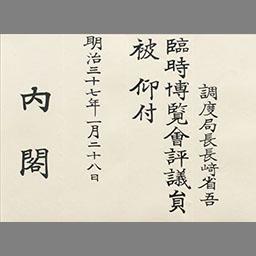 調度局長長崎省吾
臨時博覽會評議員
被仰付
明治三十七年一月二十八日
內閣